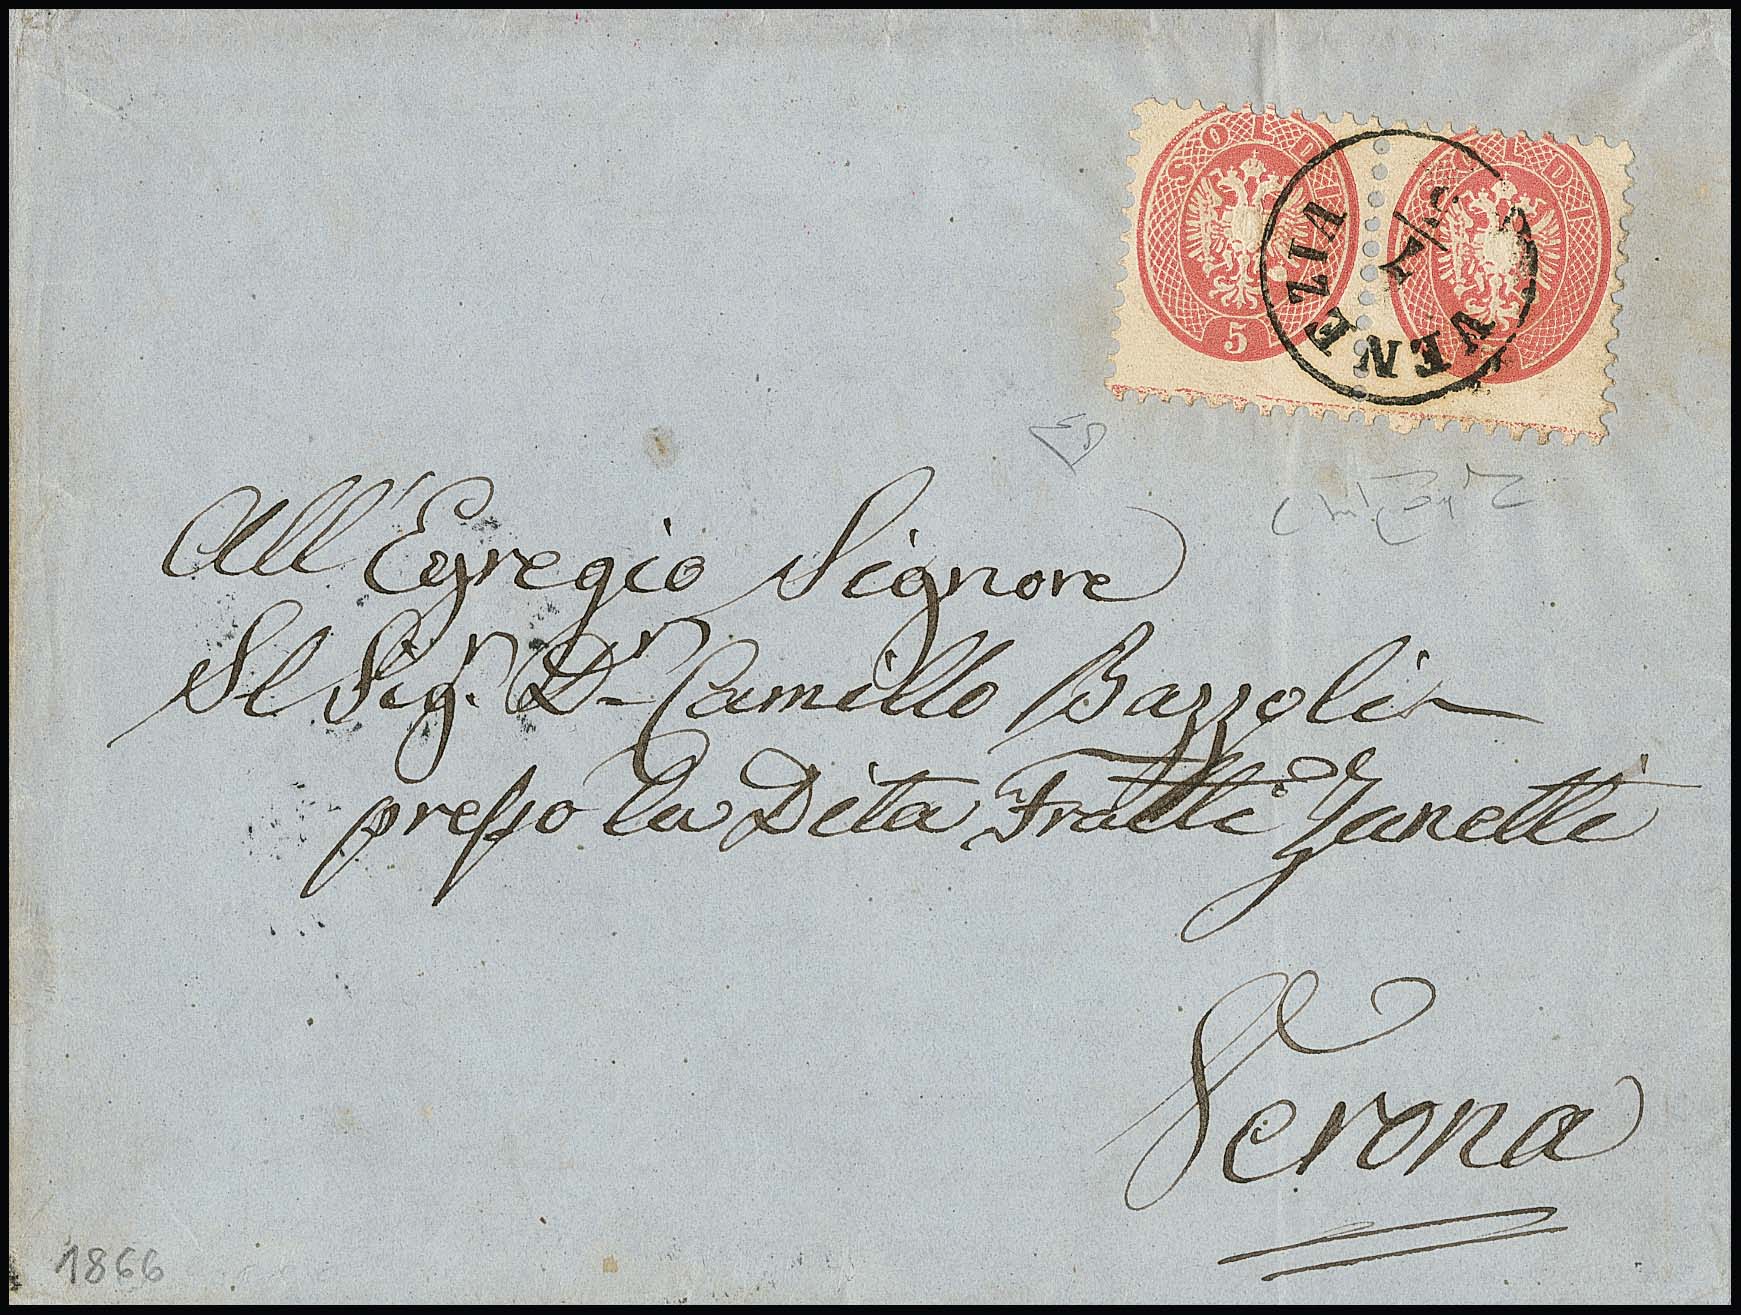 SOLDI 5
SOLDI
VENEZIA
All'Egregio Signore
Il Sig.r D.r Camillo Bazzoli
presso la Dita Fratti Zanetti
Verona
1866